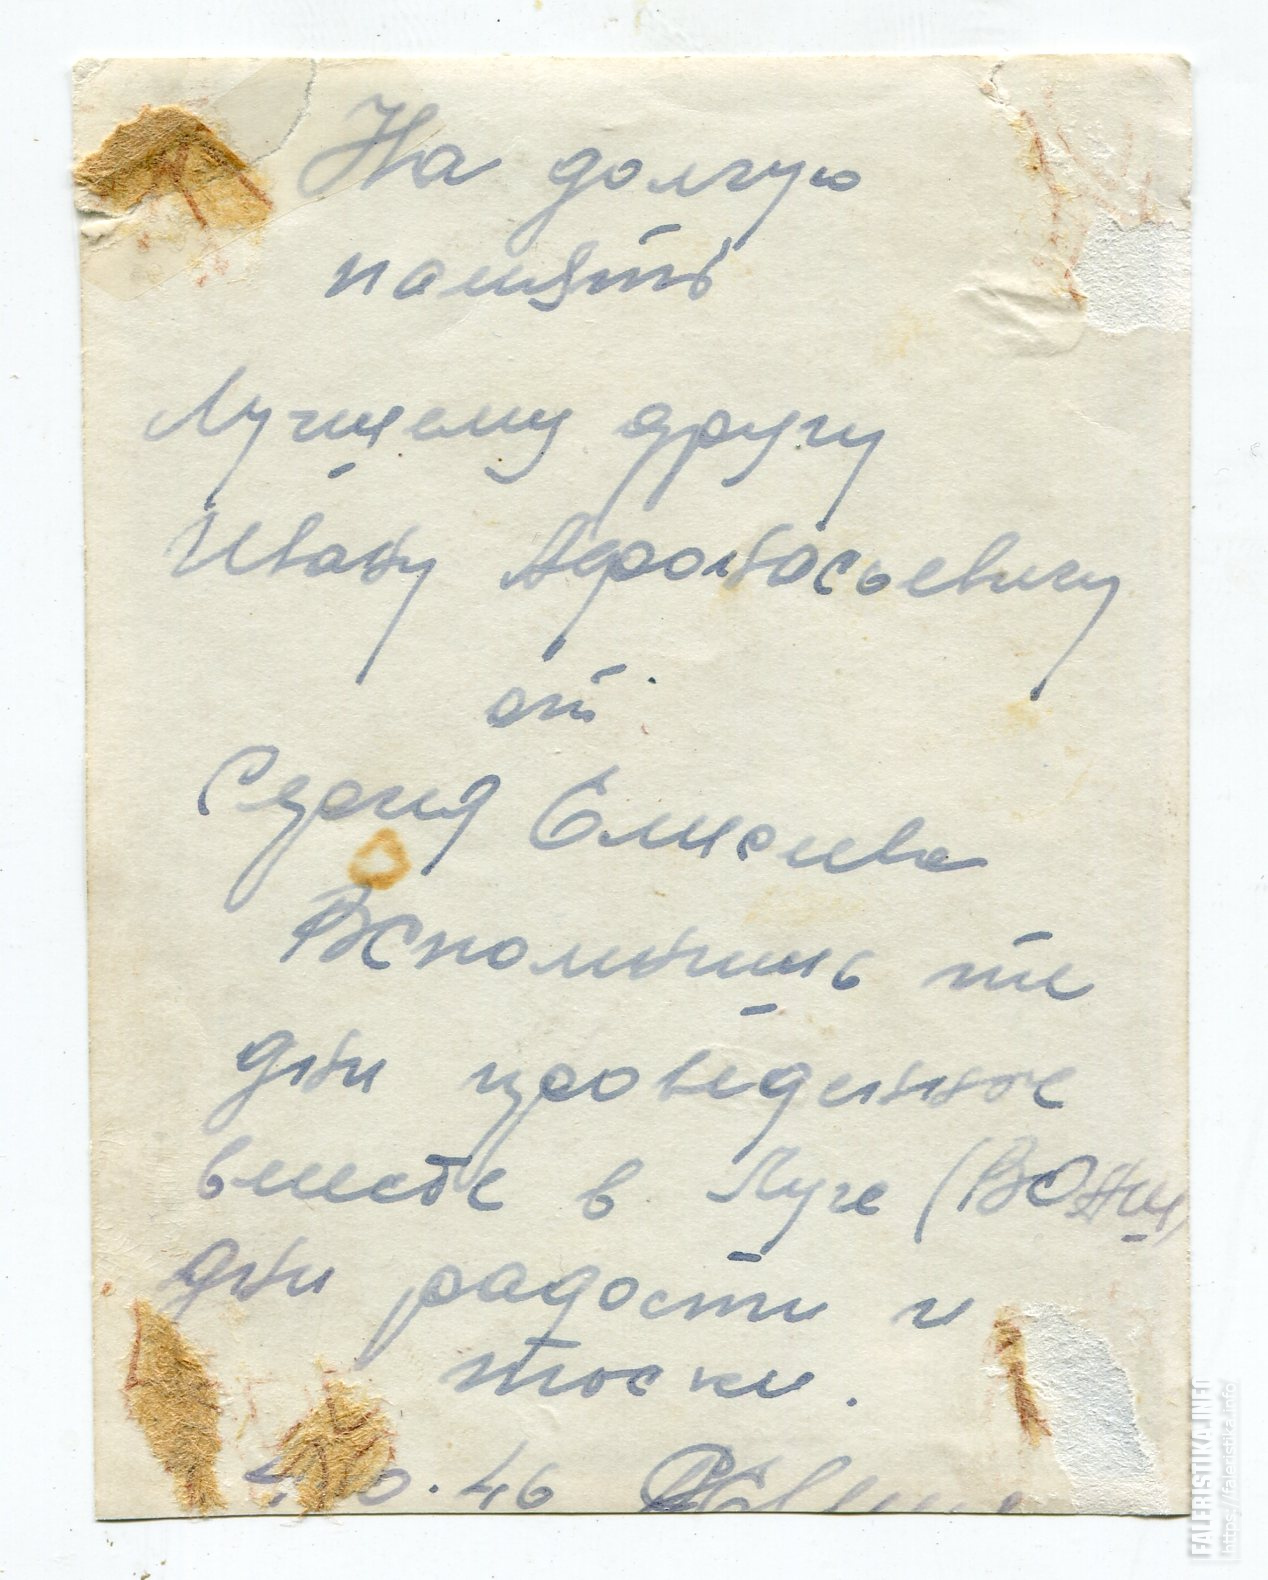 На долгую
память
Лучшему другу
Ивану Афонасьевичу
от
Сергия Елисеева
Вспомнишь те
дни проведенные
вместе в Луге (ВОЛЧ
дни радости и
тоски.
46
FALERISTIKA.INFO
https://faleristika.info